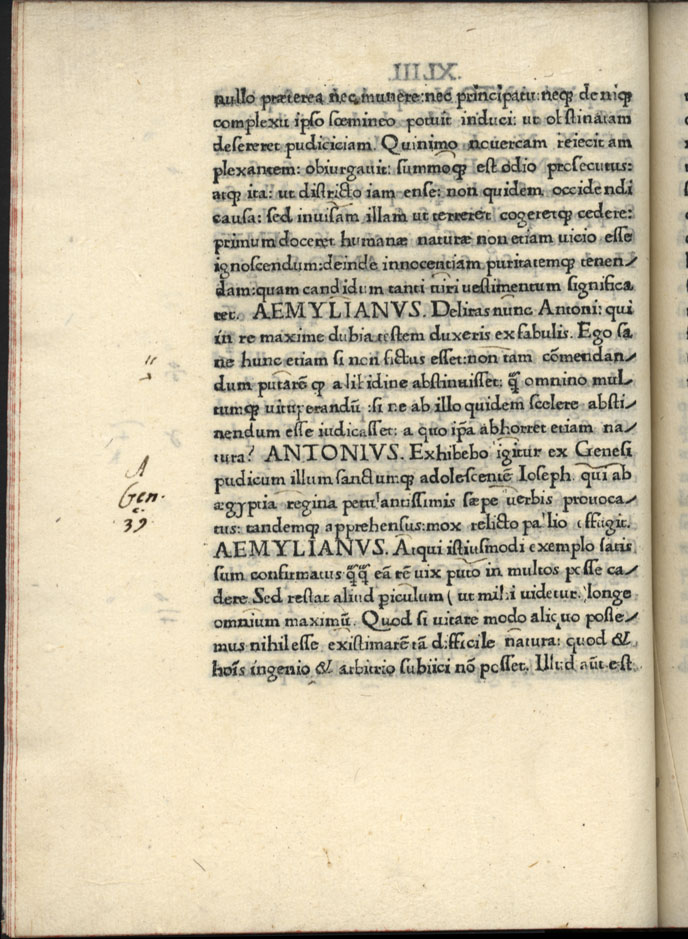 nullo præterea nec munere: nec principatu: neqꝫ deniqꝫ
complexu ipso fœmineo potuit induci: ut obstinatam
desereret pudiciciam. Quinimo nouercam reiecit am
plexantem: obiurgauit: summoqꝫ est odio prosecutus:
atqꝫ ita: ut districto iam ense: non quidem occidendi
causa: sed inuisam illam ut terreret cogeretqꝫ cedere:
primum doceret humanæ naturæ non etiam uicio esse
ignoscendum: deinde innocentiam puritatemqꝫ tenen/
dam: quam candidum tanti uiri uestimentum significa
ret. AEMYLIANVS. Deliras nunc Antoni: qui
in re maxime dubia testem duxeris ex fabulis. Ego sa
ne hunc etiam si non fictus esset: non tam cōmendan/
dum putarē ꝙ a libidine abstinuisset: q̃ omnino mul
tumqꝫ uituperandū: si ne ab illo quidem scelere absti/
nendum esse iudicasset: a quo ip̄a abhorret etiam na/
tura? ANTONIVS. Exhibebo igitur ex Genesi
pudicum illum sanctumqꝫ adolescentē Ioseph. qui ab
ægyptia regina petulantissimis sæpe uerbis prouoca/
tus: tandemqꝫ apprehensus: mox relicto pallio effugit.
AEMYLIANVS. Atqui istiusmodi exemplo satis
sum confirmatus q̃q̃ eā rē uix puto in multos posse ca/
dere. Sed restat aliud ꝑiculum (ut mihi uidetur. longe
omnium maximū. Quod si uitare modo aliquo posse/
mus nihil esse existimarē tā difficile natura: quod &
hoīs ingenio & arbitrio subiici nō posset. Illud aūt est
"
A
Gen.
c.
39